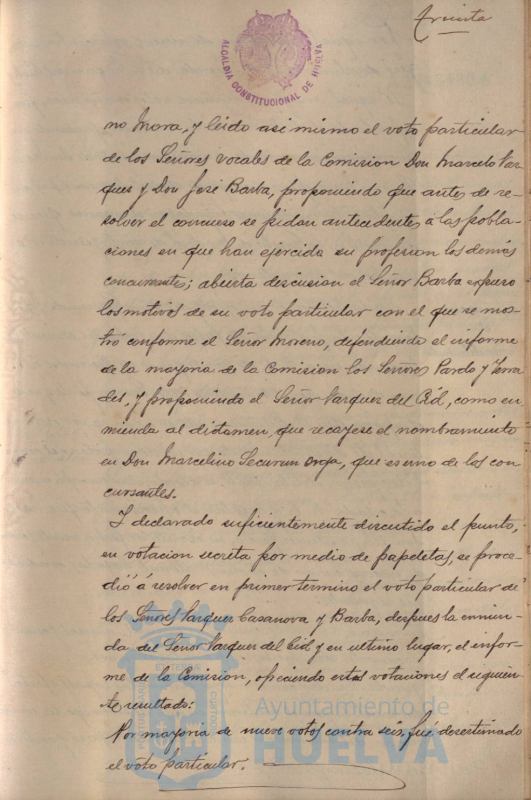 Treinta
ALCALDIA CONSTITUCIONAL DE HUELVA
no Mora, y leido asi mismo el voto particular
de los Señores vocales de la Comision Don Marcelo Vaz-
quez y Don José Barba, proponiendo que antes de re-
solver el concurso se pidan antecedentes á las pobla-
ciones en que han ejercido su profesion los demás
concursantes; abierta descusion el Señor Barba expuso
los motivos de su voto particular con el que se mos-
tró conforme el Señor Moreno, defendiendo el informe
de la mayoria de la Comision los Señores Pardo y Terra
des, y proponiendo el Señor Vazquez del Cid, como en-
mienda al dictamen, que recayese el nombramiento
en Don Marcelino, que es uno de los con
cursantes.
I declarado suficientemente discutido el punto,
en votacion secreta por medio de papeletas, se proce-
dió á resolver en primer termino el voto particular de
los Señores Vazquez Casanova y Barba, despues la enmien-
da del Señor Vazquez del Cid y en ultimo lugar, el infor-
me de la Comision, ofreciendo estas votaciones el siguien-
te resultado:
Por mayoria de nueve votos contra seis, fué desestimado
el voto particular.
Ayuntamiento de
HUELVA